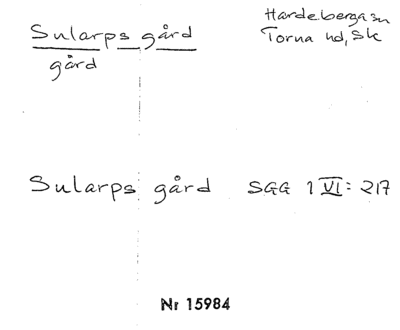 Sularps gård
gård
Hardeberga sn
Torna hd, Sk
Sularps gård SGG 1 VI: 217
Nr 15984